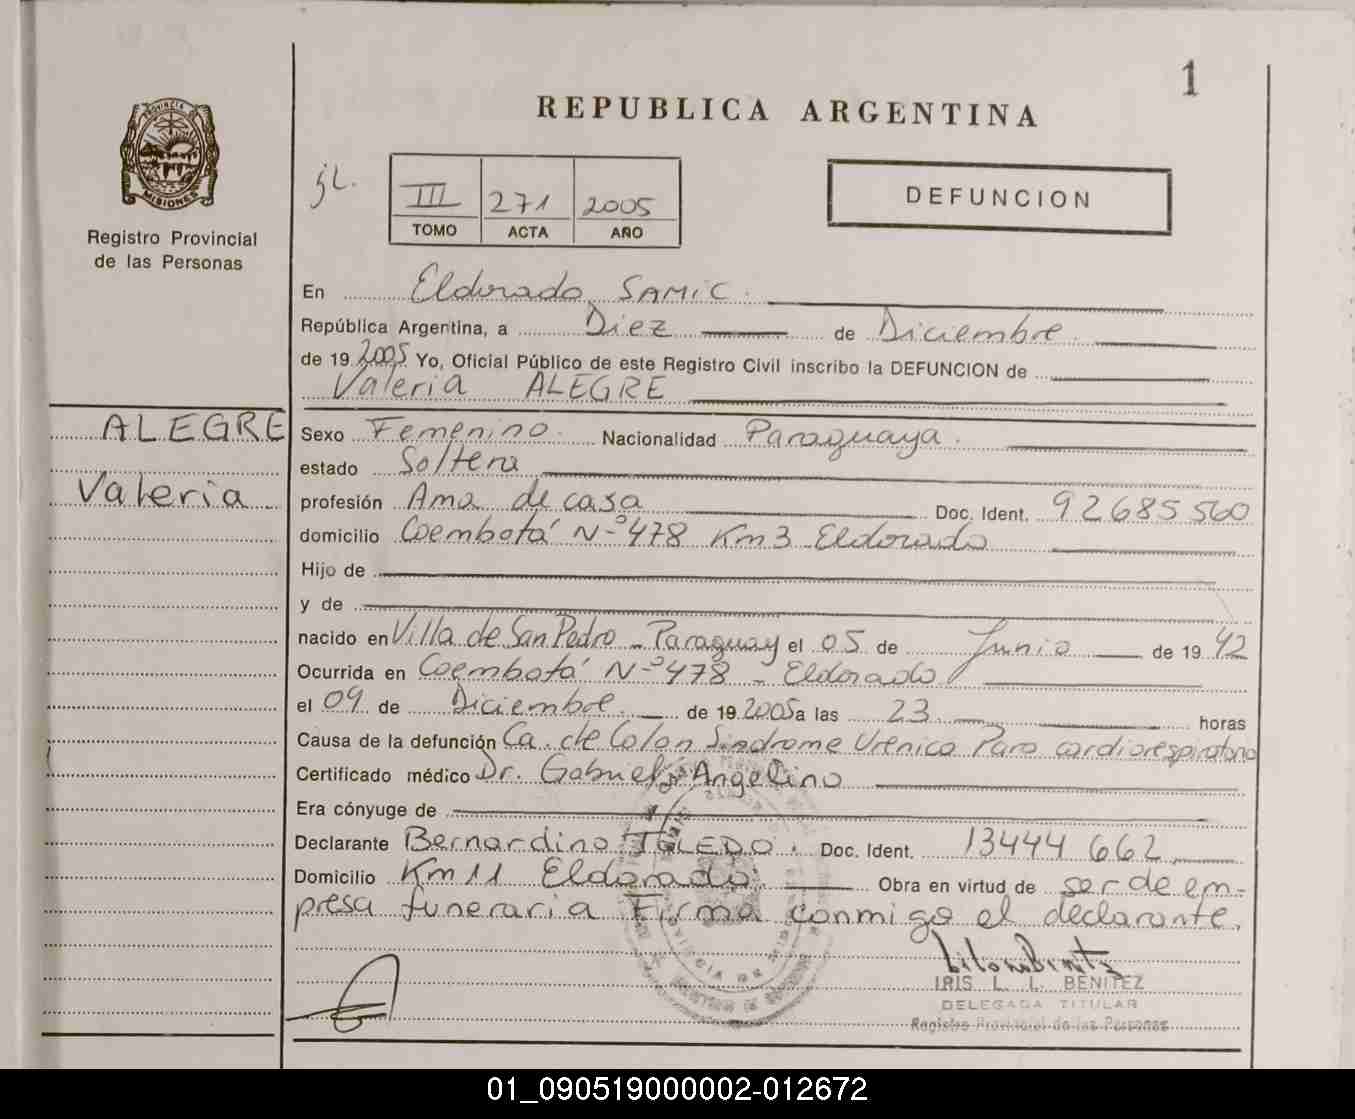 1
REPUBLICA ARGENTINA
PROVINCIA DE
MISIONES
Registro Provincial
de las Personas
III 271 2005
TOMO ACTA AÑO
DEFUNCION
En Eldorado SAMIC.
República Argentina, a Diez de Diciembre
de 19 2005 Yo, Oficial Público de este Registro Civil inscribo la DEFUNCION de
Valeria ALEGRE
ALEGRE
Valeria
Sexo Femenino. Nacionalidad Paraguaya.
estado Soltera
profesión Ama de casa Doc. Ident. 92685560
domicilio Coembotá N-º 478 Km 3 Eldorado
Hijo de
y de
nacido en Villa de San Pedro - Paraguay el 05 de Junio de 19 42
Ocurrida en Coembotá N-º 478 - Eldorado
el 09 de Diciembre. de 19 2005 a las 23 horas
Causa de la defunción Ca. de Colon Sindrome Urenico Paro cardiorespiratorio
Certificado médico Dr. Gabriel Angelino
Era cónyuge de
Declarante Bernardino TOLEDO. Doc. Ident. 13444 662
Domicilio Km 11 Eldorado. Obra en virtud de ser de em-
presa funeraria Firma conmigo el declarante.
IRIS L. L. BENITEZ
DELEGADA TITULAR
Registro Provincial de las Personas
01_090519000002-012672